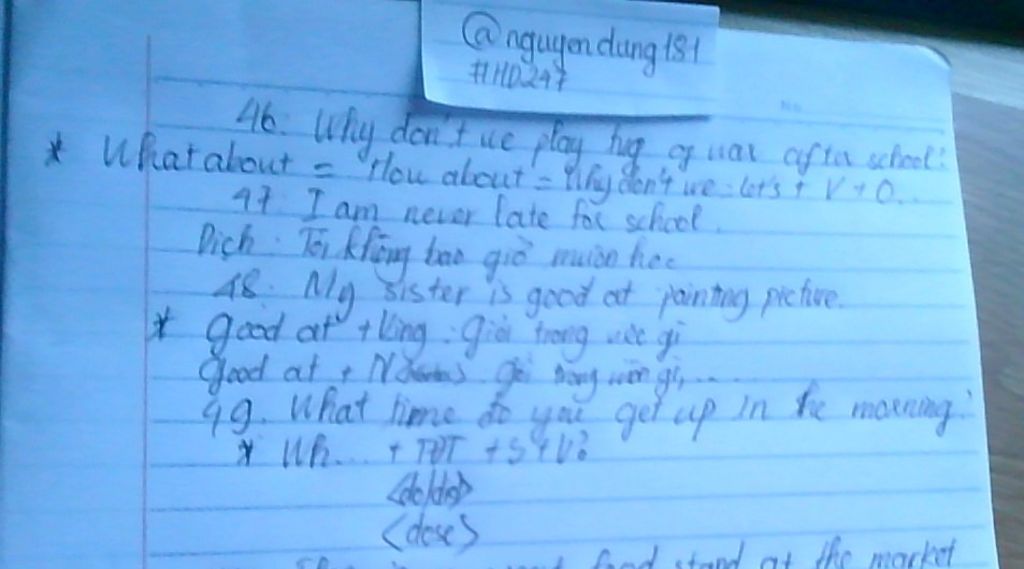 @nguyendung181
#HD247
46. Why don't we play tug of war after school?
* What about = How about = Why don't we = Let's + V + O...
47. I am never late for school.
Dịch: Tôi không bao giờ muộn học
48. My sister is good at painting picture.
* good at + Ving: giỏi trong việc gì
good at + N giỏi trong môn gì,...
49. What time do you get up in the morning?
* Wh... + TĐT + S + V?
<dose>
food stand at the market